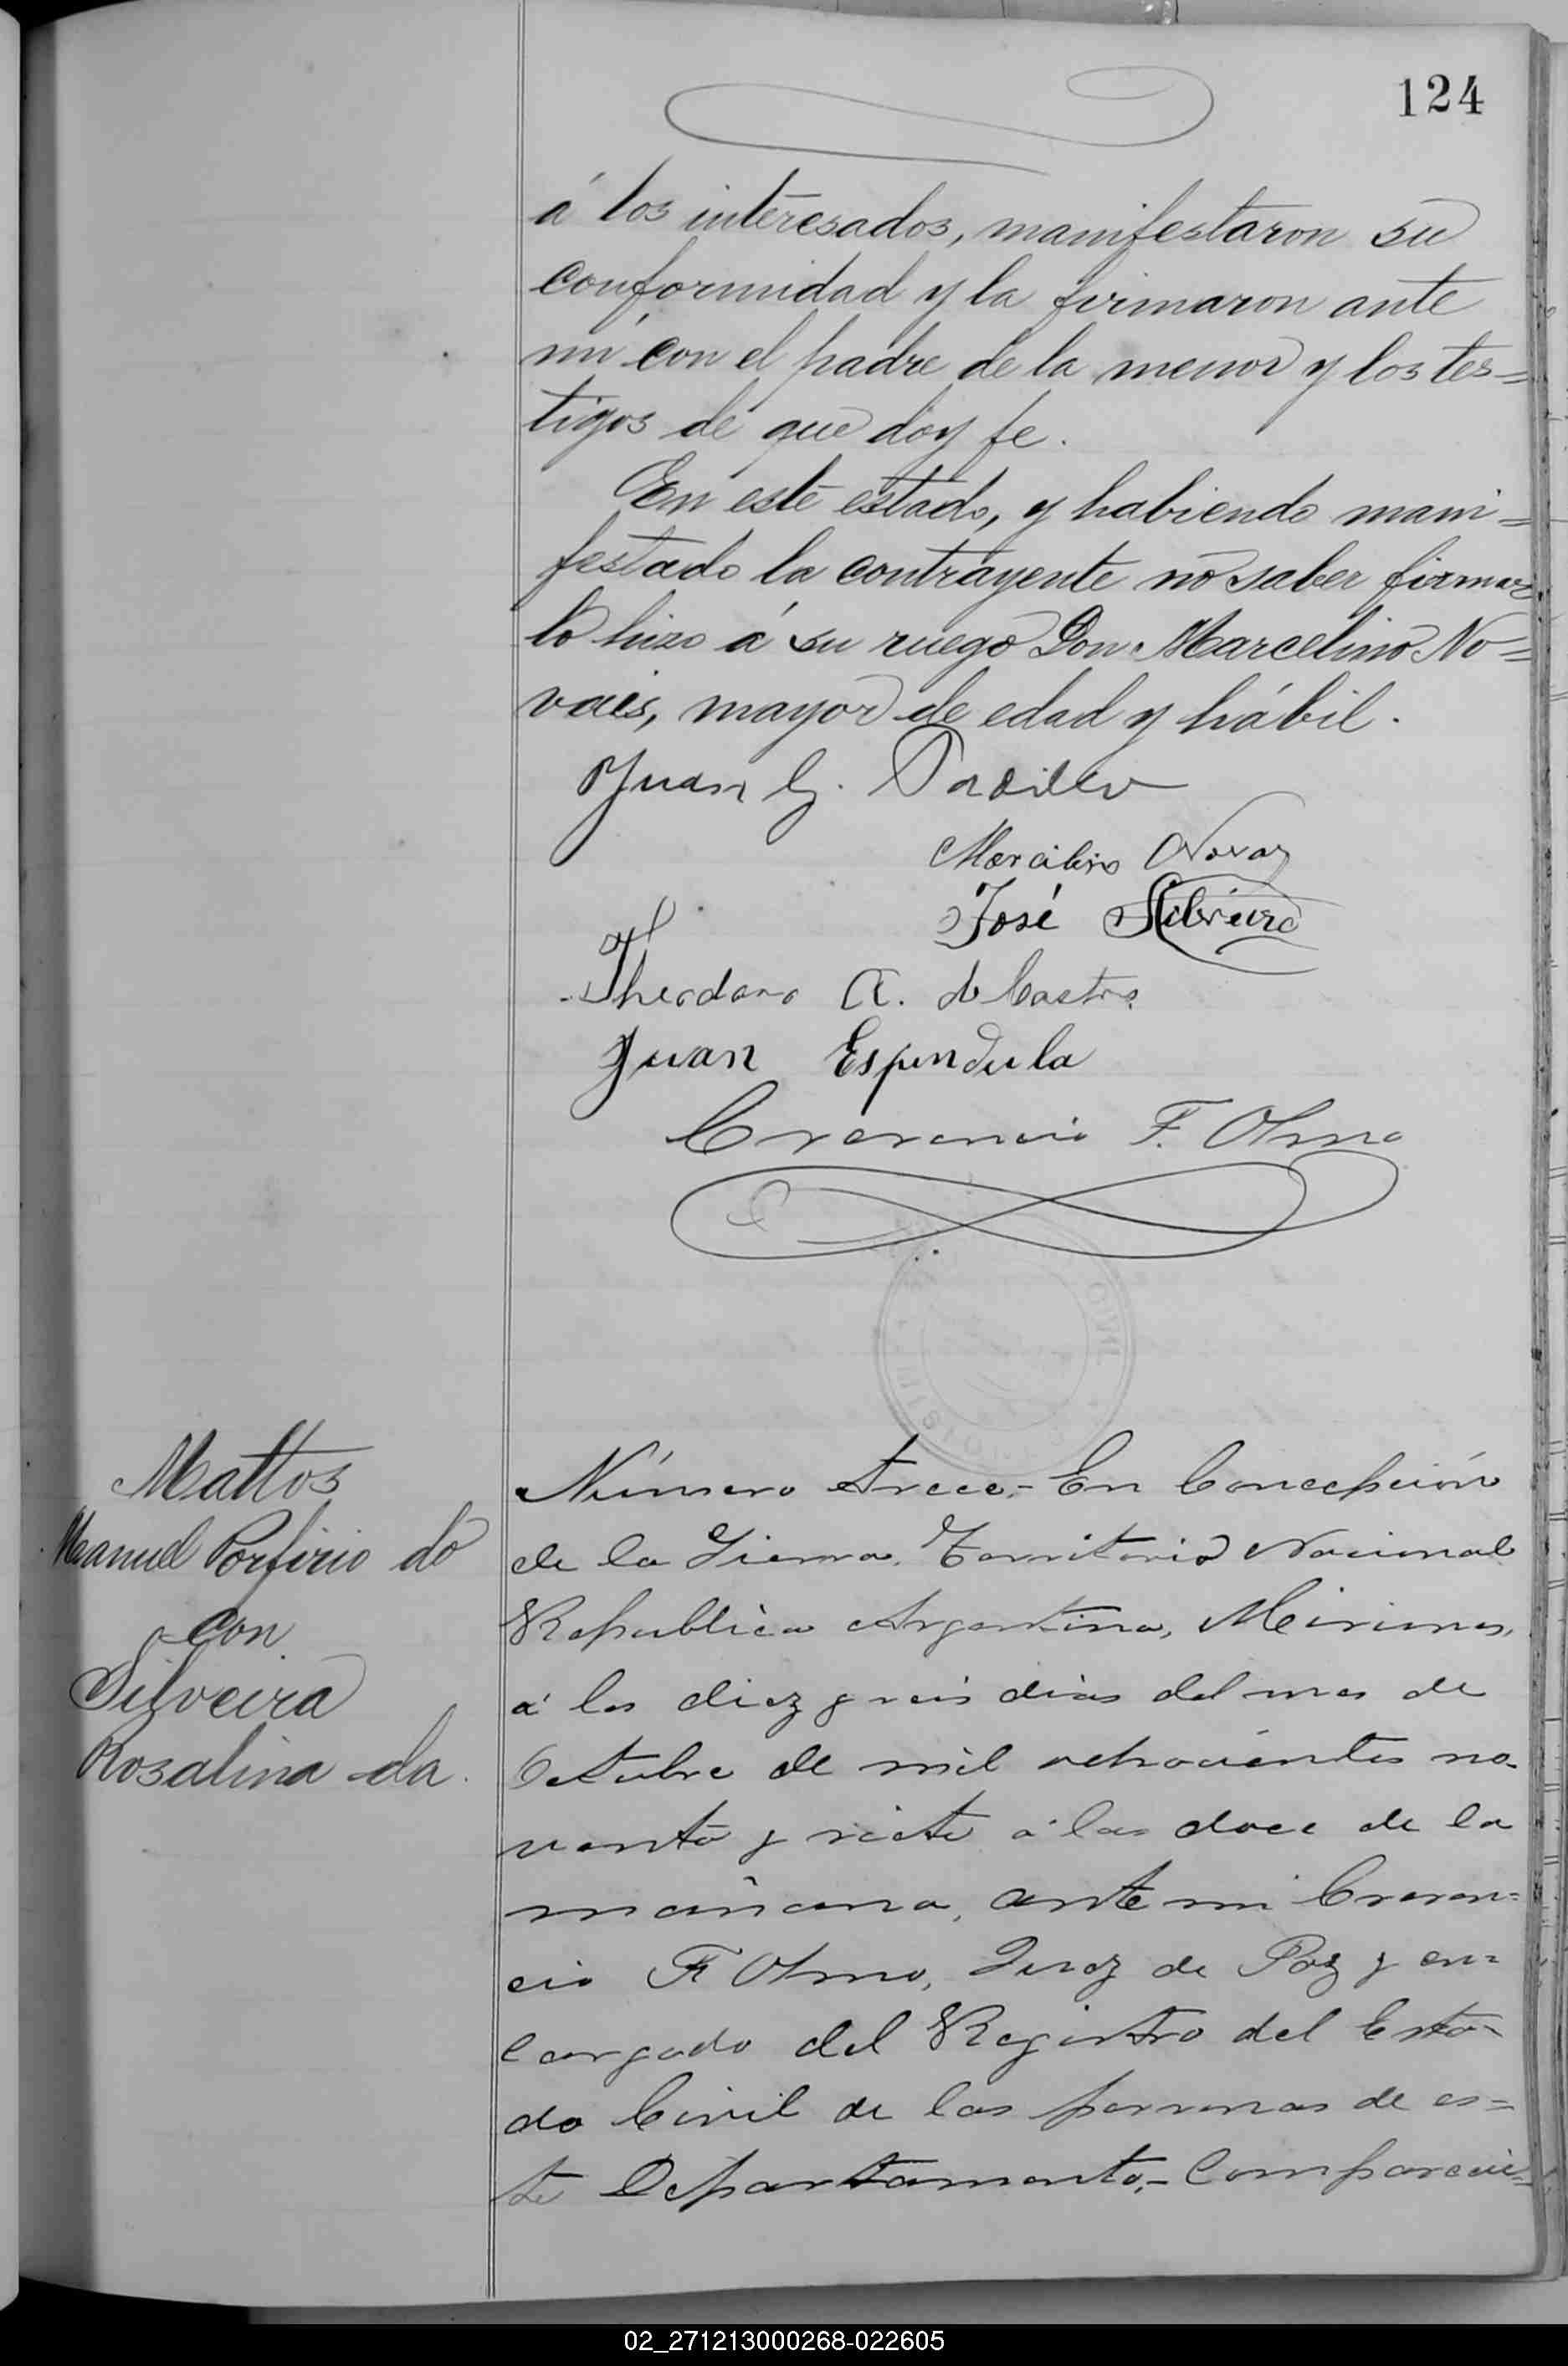 124
á los interesados, manifestaron su
conformidad y la firmaron ante
mi con el padre de la menor y los tes=
tigos de que doy fe.
En este estado, y habiendo mani=
festado la contrayente no saber firmar
lo hizo á su ruego Don Marcelino No=
vais, mayor de edad y hábil.
Juan G. Padilla
Marcelino Novas
José Silveira
Theodoro A. de Castro
Juan Espindula
Cresencio F. Olmo
Mattos
Manuel Porfirio do
con
Silveira
Rosalina da.
Número trece.- En Concepción
de la Sierra, Territorio Nacional
República Argentina, Misiones,
á los diez y seis dias del mes de
Octubre de mil ochocientos no-
venta y siete á las doce de la
mañana, ante mi Cresen=
cio F Olmo, Juez de Paz y en=
cargado del Registro del Esta-
do Civil de las personas de es=
te Departamento,- Comparecie=
02_271213000268-022605